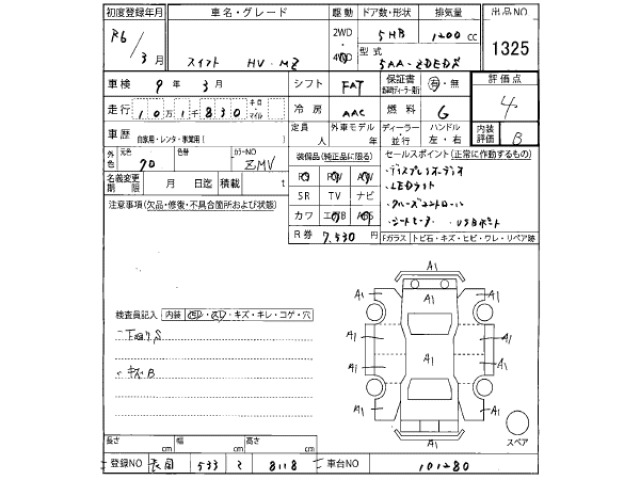 初度登録年月 車名・グレード 駆動 ドア数・形状 排気量 出品NO
R6/3月 スイフト HV・MZ 2WD・4WD 5HB 1200cc 1325
型式 5AA-ZDEDS
車検 9年 3月 シフト FAT 保証書 有・無 評価点
走行 キロ・マイル 冷房 AAC 燃料 G 4
車歴 自家用・レンタ・事業用( ) 定員 人 外車モデル 年 ディーラー・並行 ハンドル 左・右 内装評価 B
外色 元色 色替 カラーNO ZMV 装備品(純正品に限る) セールスポイント(正常に作動するもの)
名義変更期限 月 日迄 積載 t ・ディスプレイオーディオ
・LEDライト
SR TV ナビ ・クルーズコントロール
注意事項(欠品・修復・不具合箇所および状態) カワ ・シートヒーター ・USBポート
R券 7,530円 Fガラス トビ石・キズ・ヒビ・ワレ・リペア跡
A1
A1 A1
検査員記入 内装 キズ・キレ・コゲ・穴
A1 A1
A1
A1 A1
A1 A1
A1
スペア
長さ cm 幅 cm 高さ cm
登録NO 533 8118 車台NO 101280